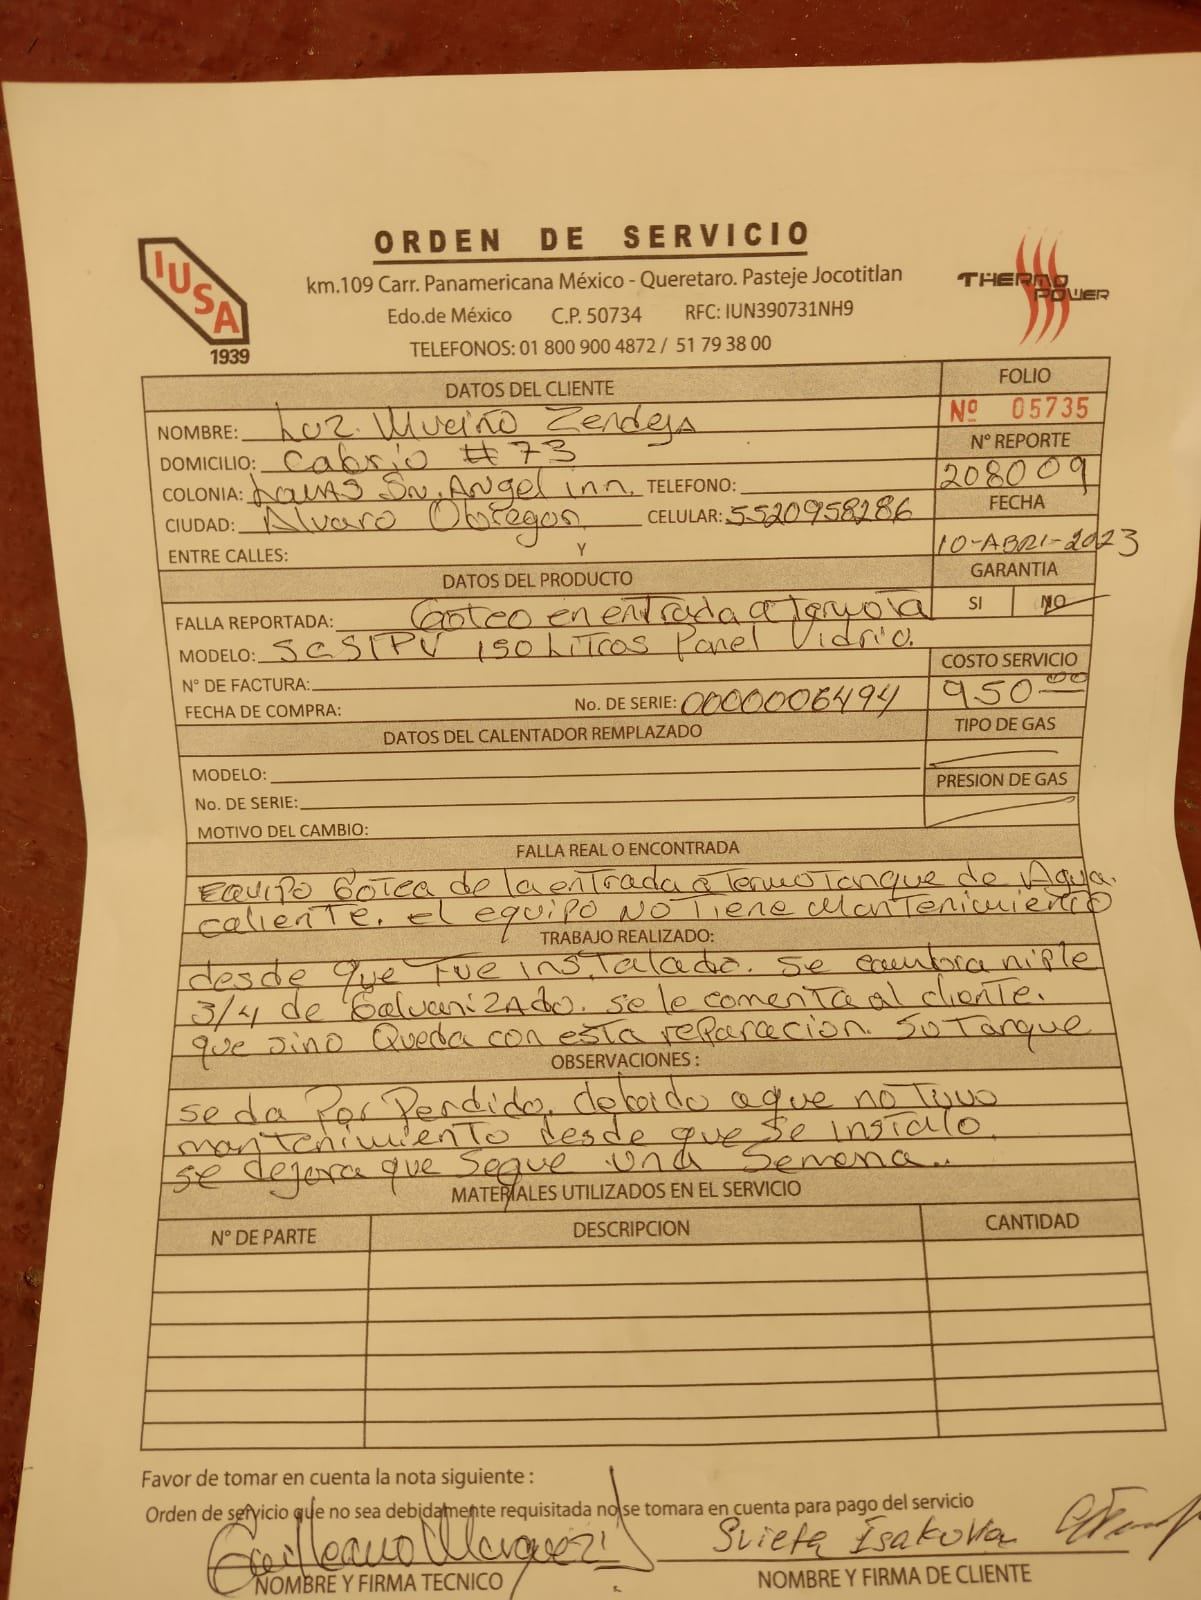 ORDEN DE SERVICIO
IUSA
1939
km.109 Carr. Panamericana México - Queretaro. Pasteje Jocotitlan
THERMO
POWER
Edo.de México C.P. 50734 RFC: IUN390731NH9
TELEFONOS: 01 800 900 4872 / 51 79 38 00
DATOS DEL CLIENTE
FOLIO
NOMBRE: Luz. Muciño Zendejs
Nº 05735
DOMICILIO: Cabrio # 73
N° REPORTE
COLONIA: Lomas Sn. Angel inn. TELEFONO:
208009
CIUDAD: Alvaro Obregon CELULAR: 5520958286
FECHA
ENTRE CALLES: Y
10-ABRI-2023
DATOS DEL PRODUCTO
GARANTIA
FALLA REPORTADA: Goteo en entrada a
SI NO
MODELO: SCSTPV 150 LiTros Panel Vidrio.
COSTO SERVICIO
N° DE FACTURA:
950.00
FECHA DE COMPRA: No. DE SERIE: 0000006494
DATOS DEL CALENTADOR REMPLAZADO
TIPO DE GAS
MODELO:
PRESION DE GAS
No. DE SERIE:
MOTIVO DEL CAMBIO:
FALLA REAL O ENCONTRADA
EQUIPO GoTea de la entrada a TermoTanque de Agua.
calienTe. el equipo NO Tiene ManTenimienTo
TRABAJO REALIZADO:
desde que Fue insTalado. se cambra niple
3/4 de GalvaniZADO. se le comenTa al clienTe.
que sino Queda con esTa reparacion. su Tanque
OBSERVACIONES :
se da Por Perdido. debido a que no Tuvo
manTenimienTo desde que se insTalo.
se dejara que seque una semana..
MATERIALES UTILIZADOS EN EL SERVICIO
N° DE PARTE DESCRIPCION CANTIDAD
Favor de tomar en cuenta la nota siguiente :
Orden de servicio que no sea debidamente requisitada no se tomara en cuenta para pago del servicio
Svieta Isakova
NOMBRE Y FIRMA TECNICO NOMBRE Y FIRMA DE CLIENTE